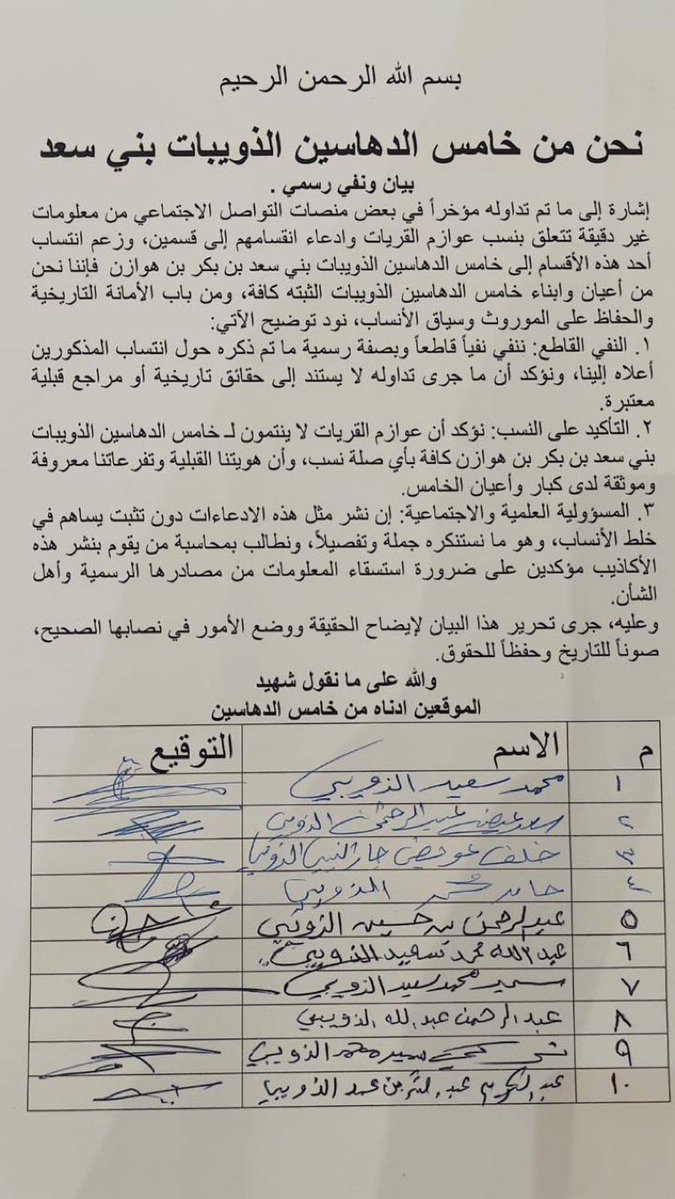 بسم الله الرحمن الرحيم
نحن من خامس الدهاسين الذويبات بني سعد
بيان ونفي رسمي .
إشارة إلى ما تم تداوله مؤخراً في بعض منصات التواصل الاجتماعي من معلومات
غير دقيقة تتعلق بنسب عوازم القريات وادعاء انقسامهم إلى قسمين، وزعم انتساب
أحد هذه الأقسام إلى خامس الدهاسين الذويبات بني سعد بن بكر بن هوازن فإننا نحن
من أعيان وابناء خامس الدهاسين الذويبات الثبته كافة، ومن باب الأمانة التاريخية
والحفاظ على الموروث وسياق الأنساب، نود توضيح الآتي:
١. النفي القاطع: ننفي نفياً قاطعاً وبصفة رسمية ما تم ذكره حول انتساب المذكورين
أعلاه إلينا، ونؤكد أن ما جرى تداوله لا يستند إلى حقائق تاريخية أو مراجع قبلية
معتبرة.
٢. التأكيد على النسب: نؤكد أن عوازم القريات لا ينتمون لـ خامس الدهاسين الذويبات
بني سعد بن بكر بن هوازن كافة بأي صلة نسب، وأن هويتنا القبلية وتفرعاتنا معروفة
وموثقة لدى كبار وأعيان الخامس.
٣. المسؤولية العلمية والاجتماعية: إن نشر مثل هذه الادعاءات دون تثبت يساهم في
خلط الأنساب، وهو ما نستنكره جملة وتفصيلاً، ونطالب بمحاسبة من يقوم بنشر هذه
الأكاذيب مؤكدين على ضرورة استسقاء المعلومات من مصادرها الرسمية وأهل
الشأن.
وعليه، جرى تحرير هذا البيان لإيضاح الحقيقة ووضع الأمور في نصابها الصحيح،
صوناً للتاريخ وحفظاً للحقوق.
والله على ما نقول شهيد
الموقعين ادناه من خامس الدهاسين
م الاسم التوقيع
١ محمد سعيد الذويبي
٢ سعد عيضه عبدالرحمن الذويبي
٣ خلف عويض الذويبي
٤ حامد محمد الذويبي
٥ عبدالرحمن بن حسين الذويبي
٦ عبدالله محمد سعيد الذويبي
٧ سمير محمد سعيد الذويبي
٨ عبدالرحمن عبدالله الذويبي
٩ محمد الذويبي
١٠ عبدالكريم عبدالله بن حمد الذويبي